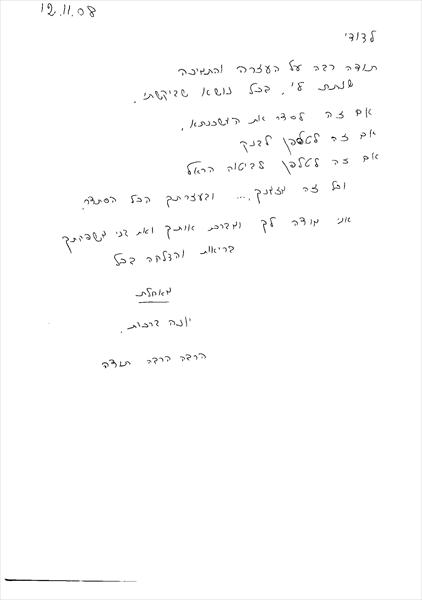 12.11.08
לדודי
תודה רבה על העזרה והתמיכה
שנתת לי, בכל נושא שביקשתי.
אם זה לסדר את המשכנתא,
אם זה לטלפן לבנק
אם זה לטלפן לביטוח הראל
וכל זה מזמנך.... ובעזרתך הכל הסתדר.
אני מודה לך ומברכת אותך ואת בני משפחתך
בריאות והצלחה בכל
מאחלת
יונה ברכות.
הרבה הרבה תודה